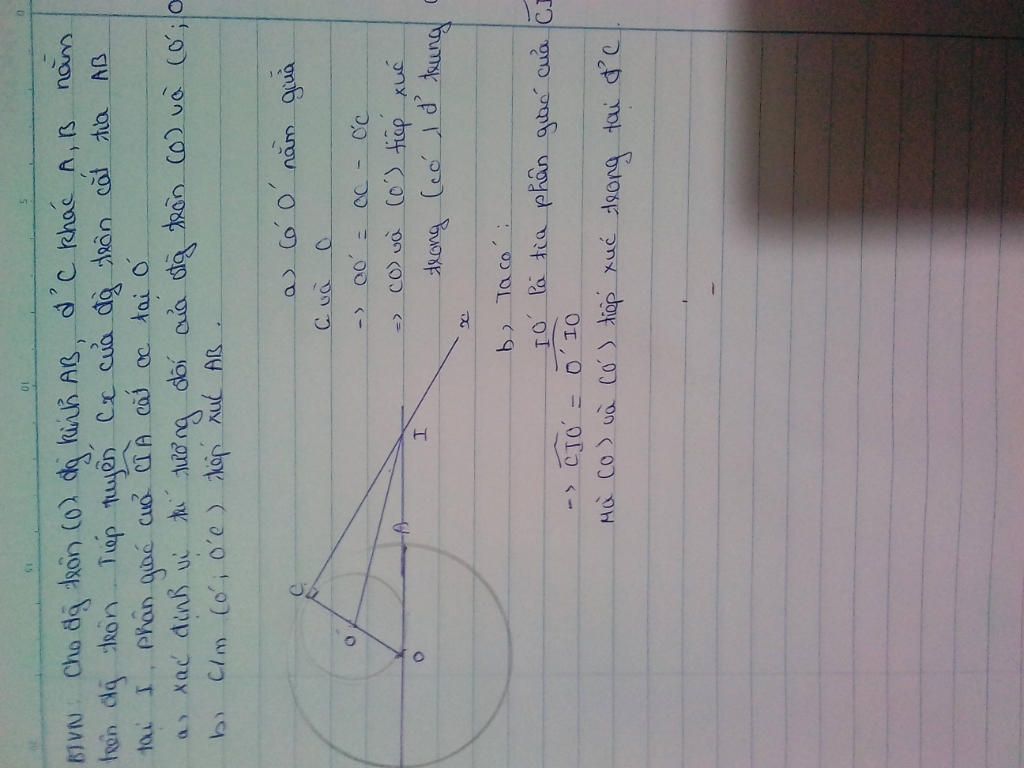 BTVN: Cho đg tròn (O) đg kính AB, đ' C khác A, B nằm
trên đg tròn. Tiếp tuyến Cx của đg tròn cắt tia AB
tại I. phân giác của CIA cắt oc tại O'
a) xác định vị trí tương đối của đg tròn (O) và (O'; O
b) C/m (O'; O'C) tiếp xúc AB.
C
O'
O
A
I
x
a) Có O' nằm giữa
C và O
-> OO' = OC - O'C
=> (O) và (O') tiếp xúc
trong (có 1 đ' chung
b, Ta có:
IO' là tia phân giác của CI
-> CIO' = O'IO
Mà (O) và (O') tiếp xúc trong tại đ' C